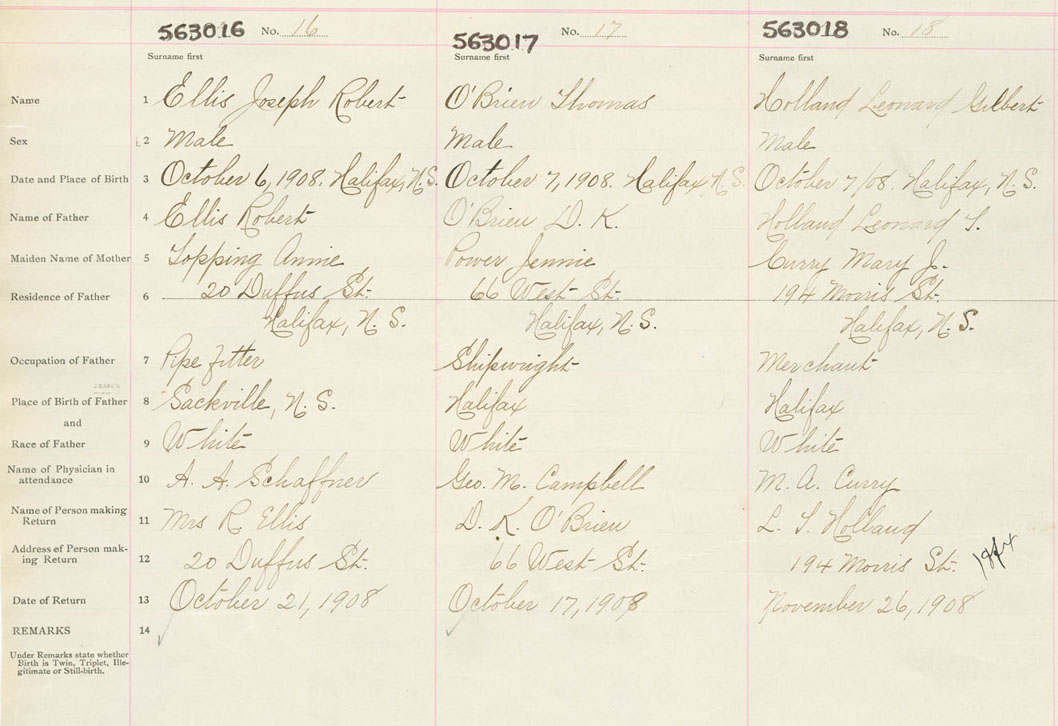 563016 No. 16 563017 No. 17 563018 No. 18
Surname first Surname first Surname first
Name 1 Ellis Joseph Robert O'Brien Thomas Holland Leonard Gilbert
Sex 2 Male Male Male
Date and Place of Birth 3 October 6, 1908. Halifax, N.S. October 7, 1908. Halifax N.S. October 7/08. Halifax, N.S.
Name of Father 4 Ellis Robert O'Brien D. K. Holland Leonard S.
Maiden Name of Mother 5 Topping Annie Power Jennie Curry Mary J.
Residence of Father 6 20 Duffus St. 66 West St. 194 Morris St.
Halifax, N.S. Halifax, N.S. Halifax, N.S.
Occupation of Father 7 Pipe fitter Shipwright Merchant
Place of Birth of Father 8 Sackville, N.S. Halifax Halifax
and
Race of Father 9 White White White
Name of Physician in
attendance 10 A. A. Schaffner Geo. M. Campbell M. A. Curry
Name of Person making
Return 11 Mrs R. Ellis D. K. O'Brien L. S. Holland
Address of Person mak-
ing Return 12 20 Duffus St. 66 West St. 194 Morris St.
Date of Return 13 October 21, 1908 October 17, 1908 November 26, 1908
REMARKS 14
Under Remarks state whether
Birth is Twin, Triplet, Ille-
gitimate or Still-birth.